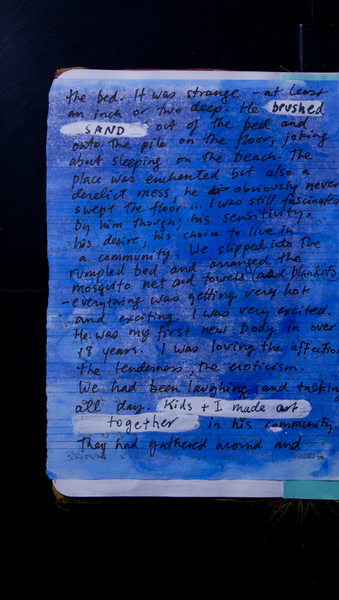 the bed. It was strange - at least
an inch or two deep. He brushed
SAND out of the bed and
onto the pile on the floor, joking
about sleeping on the beach. The
place was enchanted but also a
derelict mess, he obviously never
swept the floor... I was still fascinated
by him though; his sensitivity,
his desire, his choice to live in
a community. We slipped into the
rumpled bed and arranged the
mosquito net and towels (and blankets
- everything was getting very hot
and exciting. I was very excited.
He was my first new body in over
18 years. I was loving the affection
the tenderness, the eroticism.
We had been laughing and talking
all day. Kids + I made art
together in his community
They had gathered around and